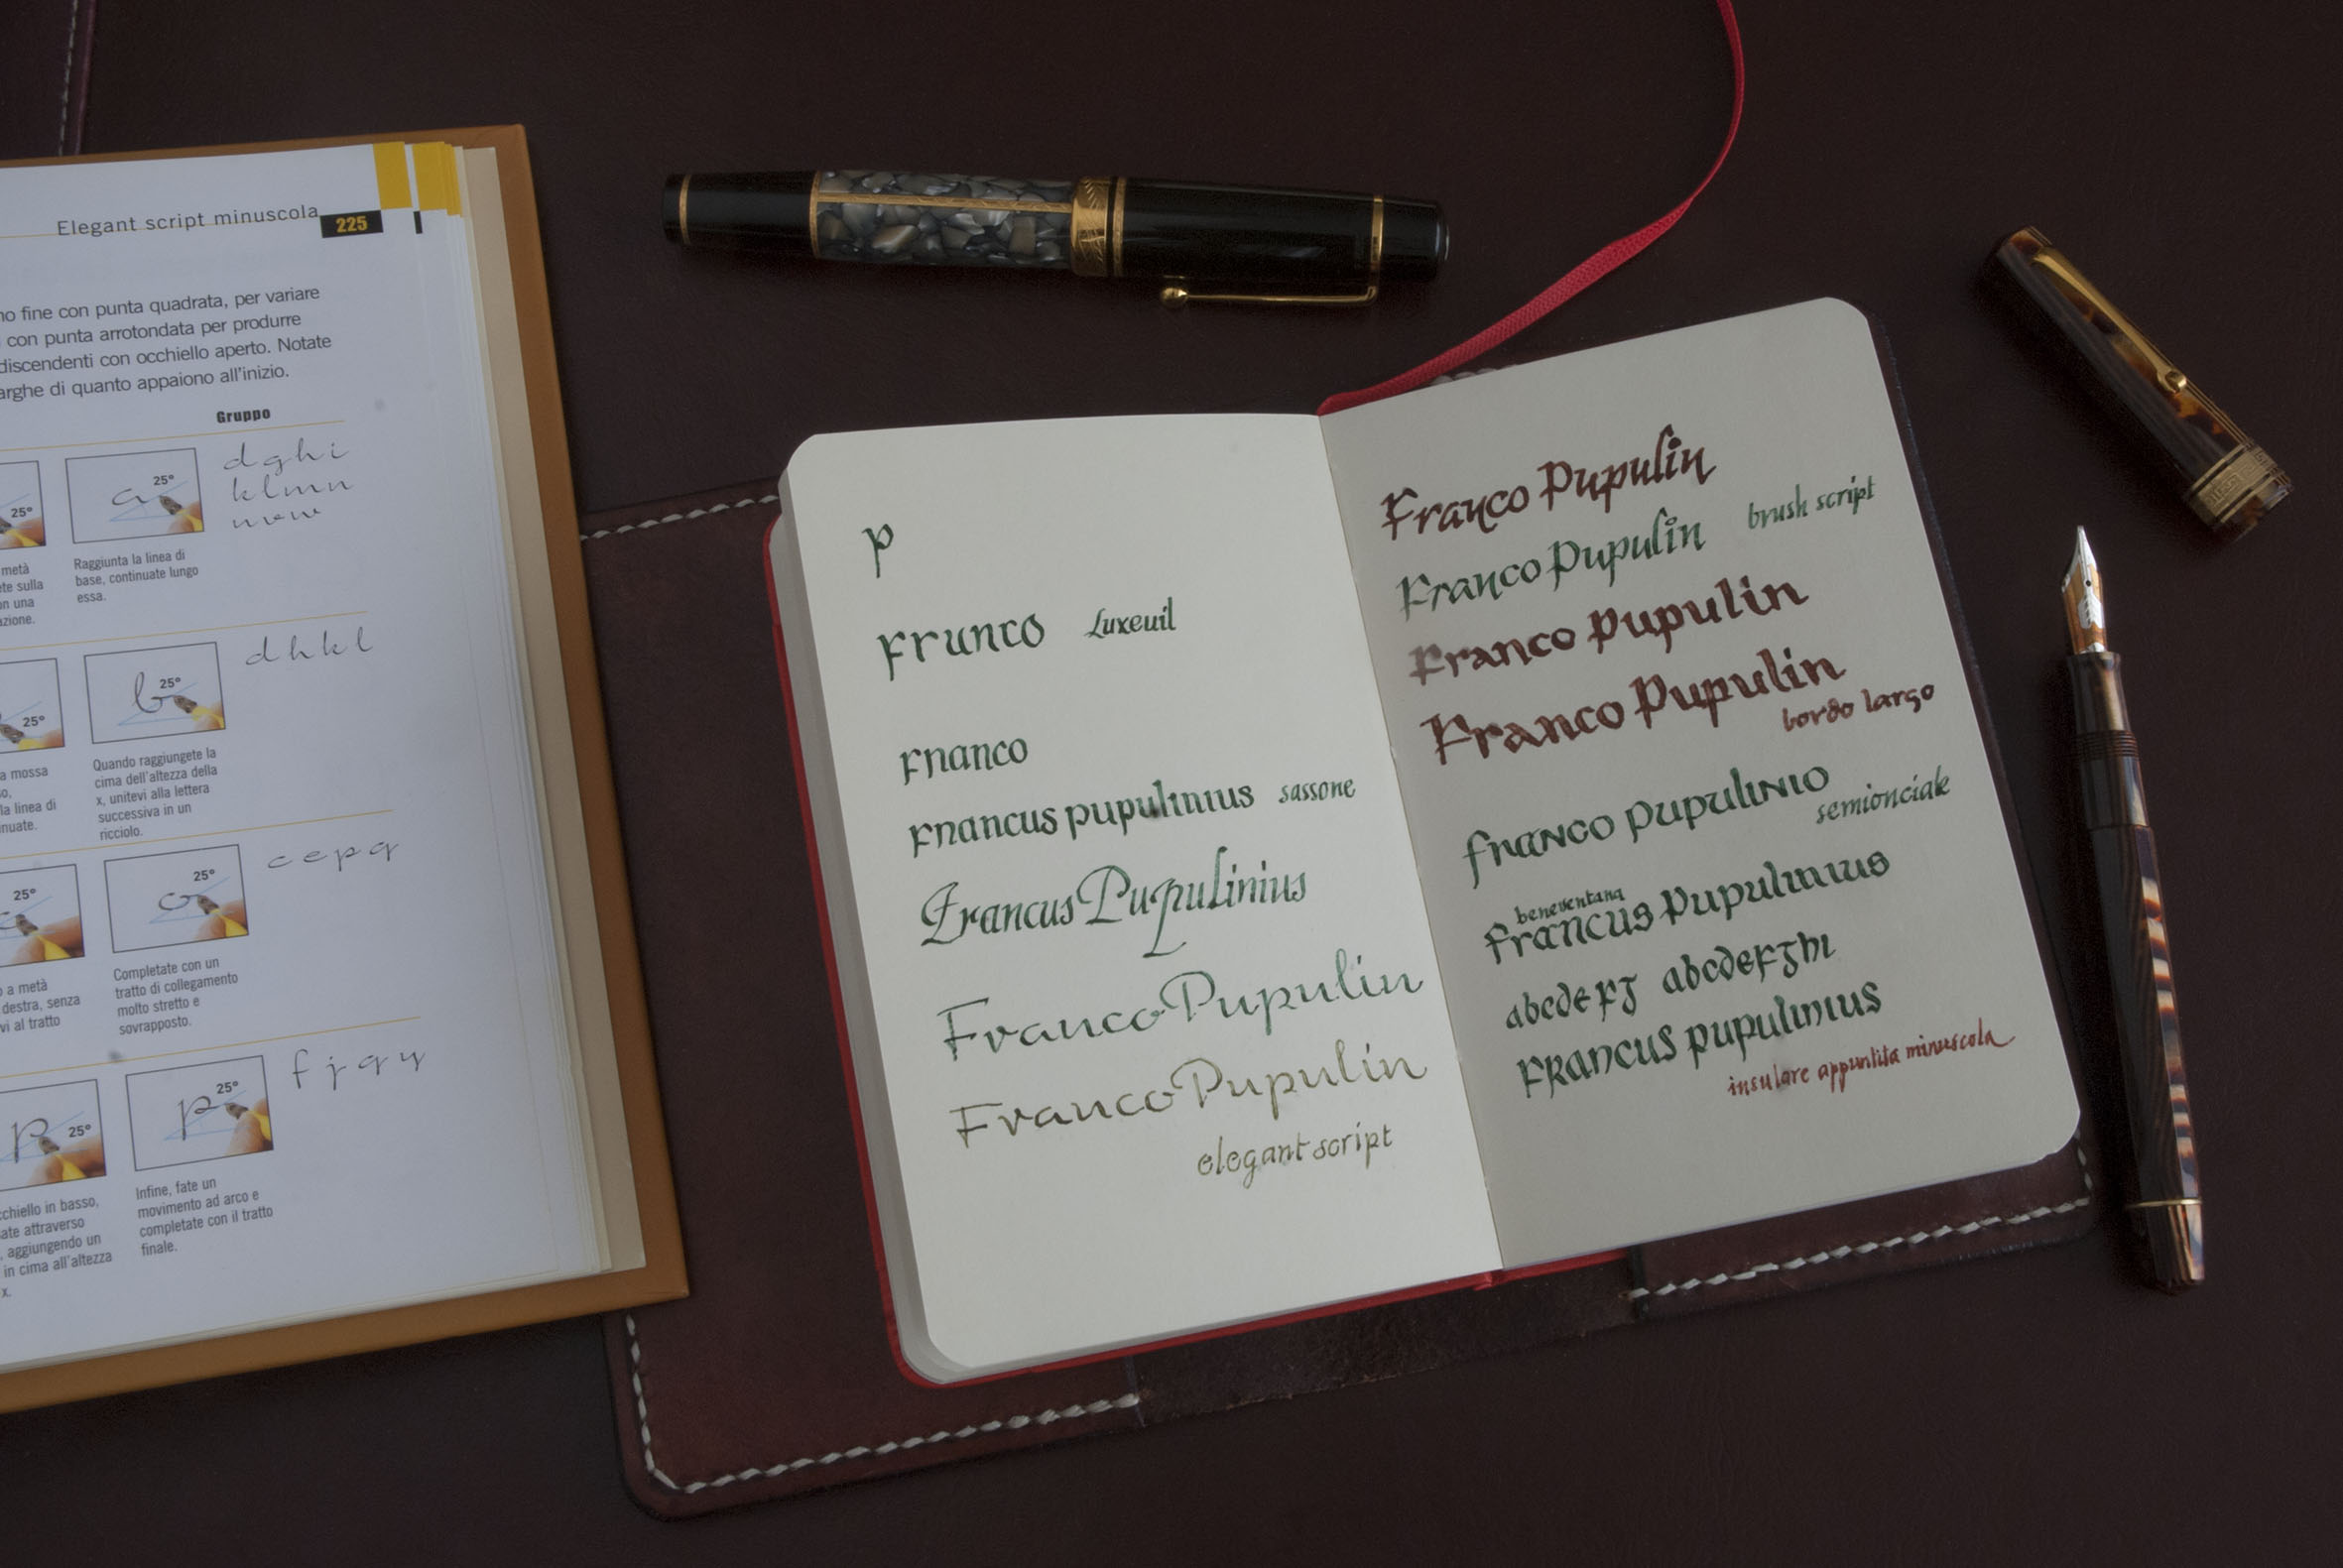 Elegant script minuscola 225
no fine con punta quadrata, per variare
con punta arrotondata per produrre
discendenti con occhiello aperto. Notate
arghe di quanto appaiono all'inizio.
Gruppo
25°
25°
d g h i
k l m n
metà
ete sulla
on una
azione.
Raggiunta la linea di
base, continuate lungo
essa.
25°
25°
d h k l
a mossa
so,
la linea di
nuate.
Quando raggiungete la
cima dell'altezza della
x, unitevi alla lettera
successiva in un
ricciolo.
25°
25°
c e p q
o a metà
destra, senza
vi al tratto
Completate con un
tratto di collegamento
molto stretto e
sovrapposto.
25°
25°
f j q y
cchiello in basso,
ate attraverso
, aggiungendo un
in cima all'altezza
x.
Infine, fate un
movimento ad arco e
completate con il tratto
finale.
p
Franco Luxeuil
Franco
Francus pupulinius sassone
Francus Pupulinius
Franco Pupulin
Franco Pupulin
elegant script
Franco Pupulin
Franco Pupulin brush script
Franco Pupulin
Franco Pupulin
bordo largo
franco pupulinio
semionciale
beneventana
francus pupulinius
abcdefg abcdefghi
Francus pupulinius
insulare appuntita minuscola